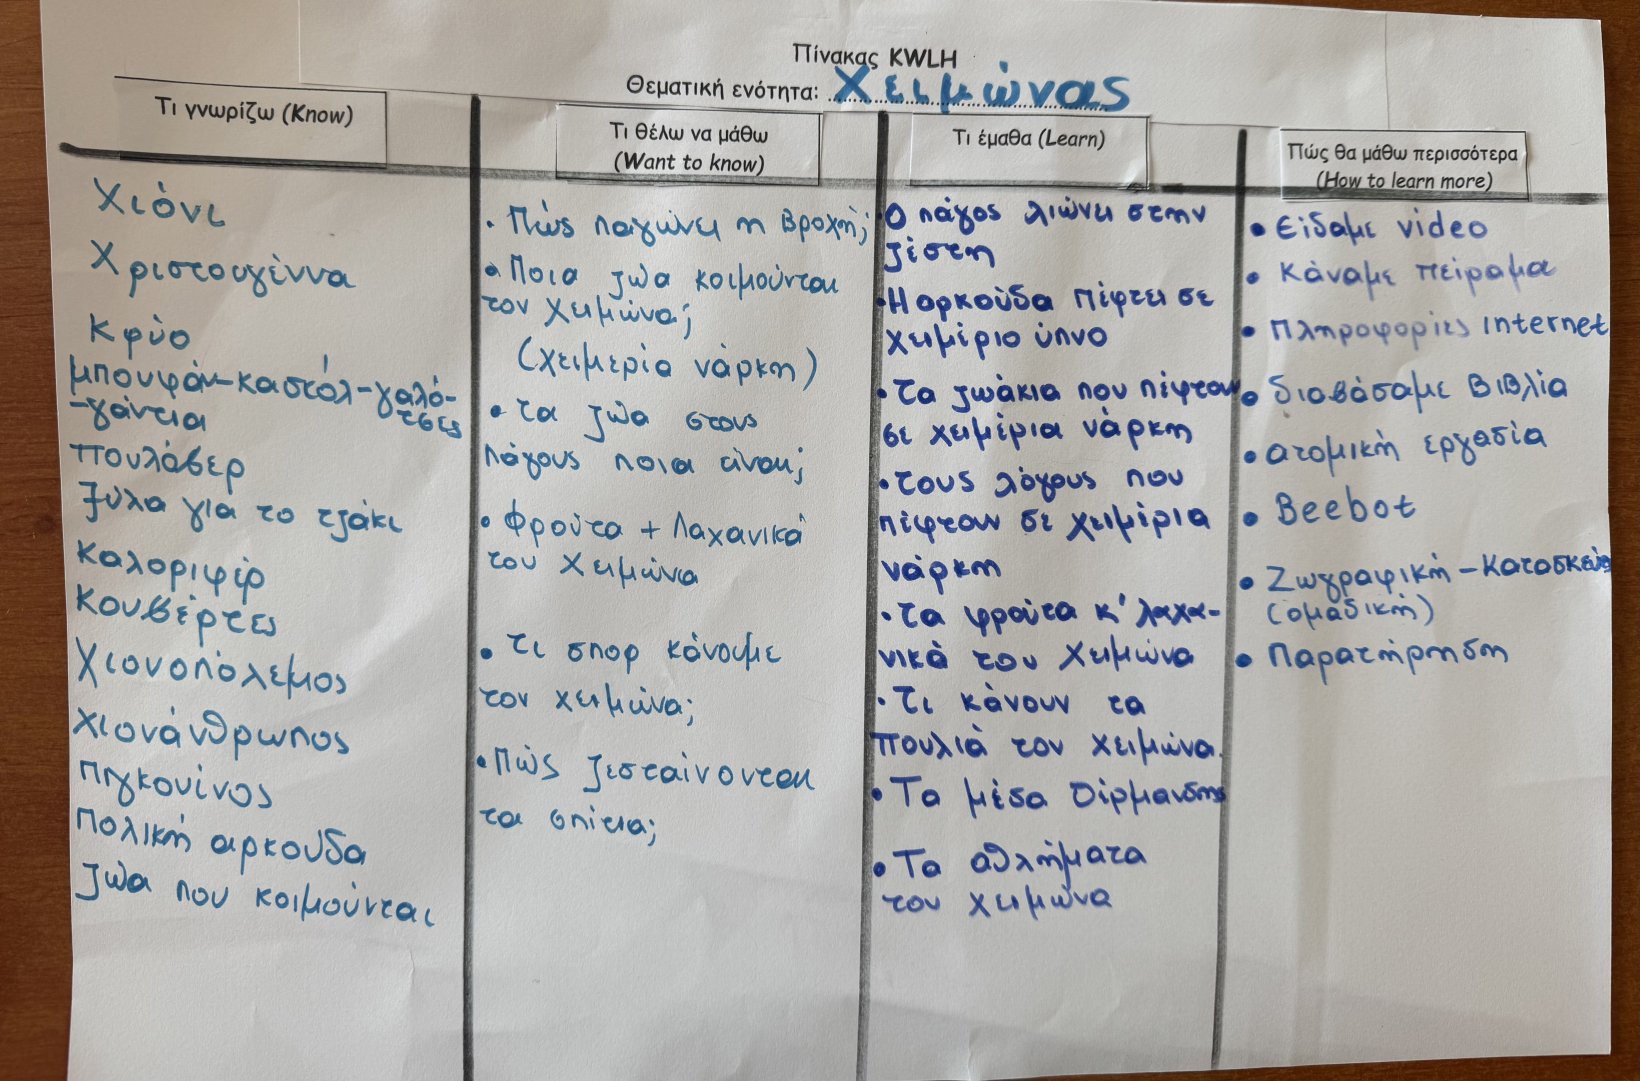 Πίνακας KWLH
Θεματική ενότητα: Χειμώνας
Τι γνωρίζω (Know)
Χιόνι
Χριστουγέννα
Κρύο
μπουφάν-κασκόλ-γαλό-
τσες
-γάντια
πουλόβερ
ξύλα για το τζάκι
καλοριφέρ
κουβέρτες
χιονοπόλεμος
χιονάνθρωπος
πιγκουίνος
πολική αρκούδα
ζώα που κοιμούνται
Τι θέλω να μάθω
(Want to know)
• Πώς παγώνει η βροχή;
• Ποια ζώα κοιμούνται
τον χειμώνα;
(χειμερία νάρκη)
• τα ζώα στους
πάγους ποια είναι;
• Φρούτα + Λαχανικά
του χειμώνα
• τι σπορ κάνουμε
τον χειμώνα;
• Πώς ζεσταίνονται
τα σπίτια;
Τι έμαθα (Learn)
• Ο πάγος λιώνει στην
ζέστη
• Η αρκούδα πέφτει σε
χειμέριο ύπνο
• Τα ζωάκια που πέφτουν
σε χειμέρια νάρκη
• τους λόγους που
πέφτουν σε χειμέρια
νάρκη
• τα φρούτα κ' λαχα-
νικά του χειμώνα
• Τι κάνουν τα
πουλιά τον χειμώνα.
• Τα μέσα θέρμανσης
• Τα αθλήματα
του χειμώνα
Πώς θα μάθω περισσότερα
(How to learn more)
• Είδαμε video
• κάναμε πείραμα
• πληροφορίες internet
• διαβάσαμε βιβλία
• ατομική εργασία
• Beebot
• Ζωγραφική - κατασκευή
(ομαδική)
• Παρατήρηση